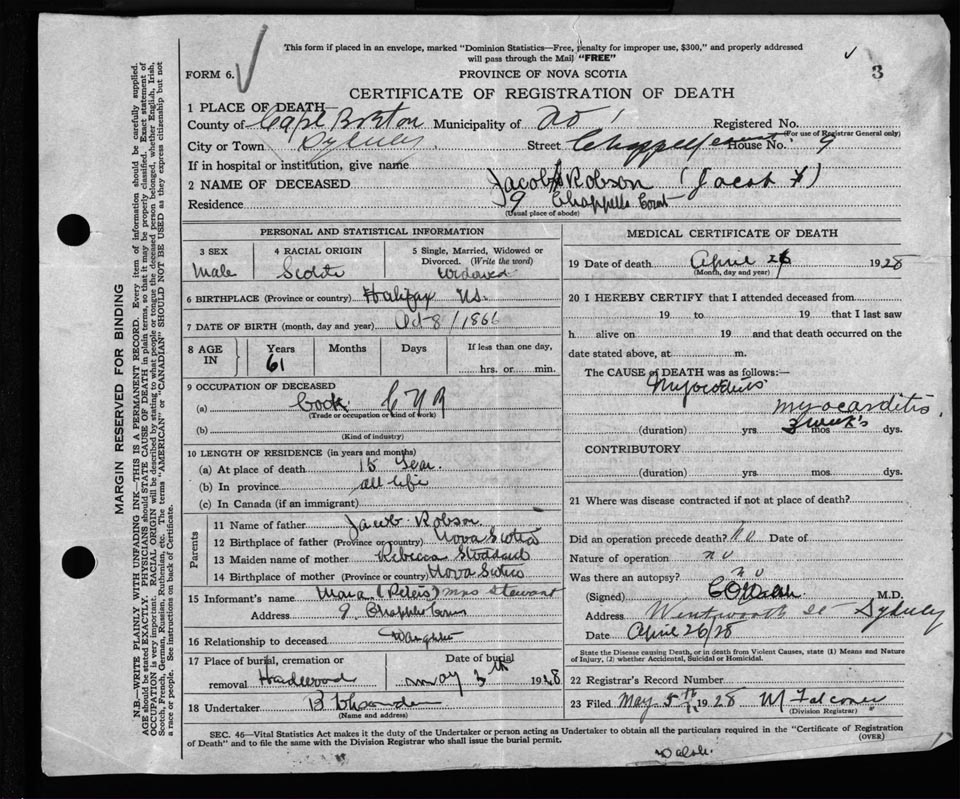 This form if placed in an envelope, marked "Dominion Statistics—Free, penalty for improper use, $300," and properly addressed
will pass through the Mail "FREE"
FORM 6.
PROVINCE OF NOVA SCOTIA
3
CERTIFICATE OF REGISTRATION OF DEATH
1 PLACE OF DEATH—
County of Cape Breton Municipality of Registered No.
(For use of Registrar General only)
City or Town Sydney Street Chappell House No. 9
If in hospital or institution, give name
2 NAME OF DECEASED Jacob Robson (Jacob
Residence 9 Chappells Court
(Usual place of abode)
PERSONAL AND STATISTICAL INFORMATION
3 SEX 4 RACIAL ORIGIN 5 Single, Married, Widowed or
Divorced. (Write the word)
Male Scotch widowed
6 BIRTHPLACE (Province or country) Halifax N.S.
7 DATE OF BIRTH (month, day and year) Oct 8/1866
8 AGE IN Years Months Days If less than one day,
61 hrs. or min.
9 OCCUPATION OF DECEASED
(a) Cook C N R
(Trade or occupation or kind of work)
(b)
(Kind of industry)
10 LENGTH OF RESIDENCE (in years and months)
(a) At place of death 15 Year.
(b) In province all life
(c) In Canada (if an immigrant)
Parents
11 Name of father Jacob Robson
12 Birthplace of father (Province or country) Nova Scotia
13 Maiden name of mother Rebecca Stoddard
14 Birthplace of mother (Province or country) Nova Scotia
15 Informant's name (Peters) Mrs Stewart
Address 9 Chappelle
16 Relationship to deceased Daughter
17 Place of burial, cremation or Date of burial
removal Hardwood May 3th 1928
18 Undertaker B
(Name and address)
MEDICAL CERTIFICATE OF DEATH
19 Date of death April 26 1928
(Month, day and year)
20 I HEREBY CERTIFY that I attended deceased from
19 to 19 that I last saw
h alive on 19 and that death occurred on the
date stated above, at m.
The CAUSE of DEATH was as follows:—
myocarditis
(duration) yrs 3 weeks mos dys.
CONTRIBUTORY
(duration) yrs. mos. dys.
21 Where was disease contracted if not at place of death?
Did an operation precede death? no Date of
Nature of operation no
Was there an autopsy? no
(Signed) Walsh M.D.
Address Wentworth St Sydney
Date April 26/28
State the Disease causing Death, or in death from Violent Causes, state (1) Means and Nature
of Injury, (2) whether Accidental, Suicidal or Homicidal.
22 Registrar's Record Number
23 Filed May 5th 1928 M Falconer
(Division Registrar)
SEC. 46—Vital Statistics Act makes it the duty of the Undertaker or person acting as Undertaker to obtain all the particulars required in the "Certificate of Registration
of Death" and to file the same with the Division Registrar who shall issue the burial permit.
(OVER)
Walsh.
MARGIN RESERVED FOR BINDING
N.B.—WRITE PLAINLY WITH UNFADING INK—THIS IS A PERMANENT RECORD. Every item of information should be carefully supplied.
AGE should be stated EXACTLY. PHYSICIANS should STATE CAUSE OF DEATH in plain terms, so that it may be properly classified. Exact statement of
OCCUPATION is very important. RACIAL ORIGIN will be described by stating to what people or tongue the deceased person belonged, whether English, Irish,
Scotch, French, German, Russian, Ruthenian, etc. The terms "AMERICAN" or "CANADIAN" SHOULD NOT BE USED as they express citizenship but not
a race or people. See instructions on back of Certificate.